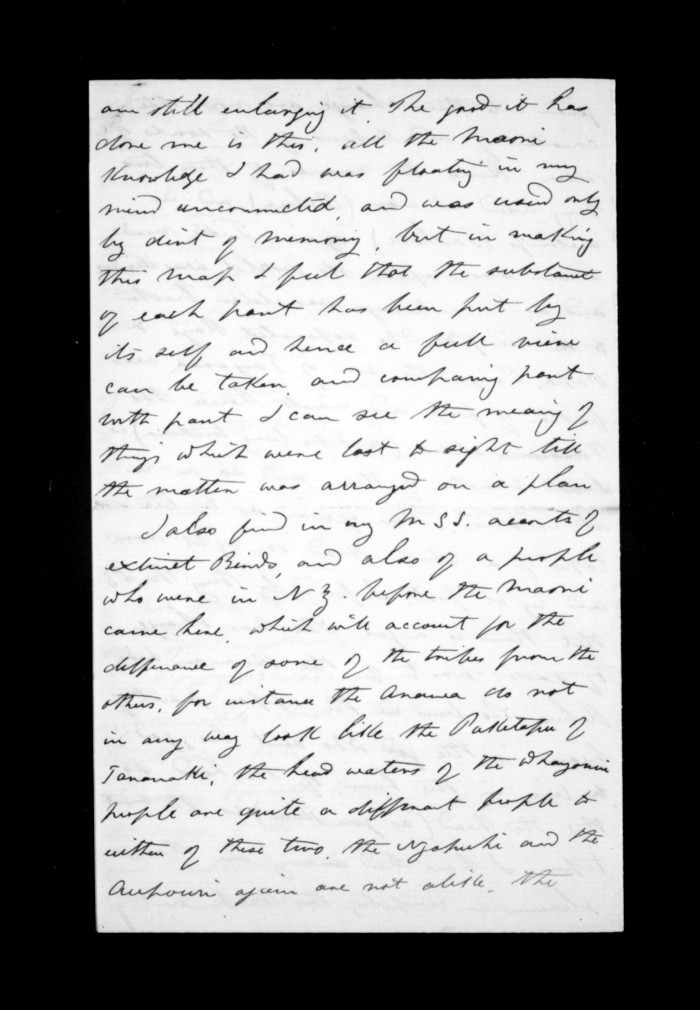 am still enlarging it. The good it has
done me is this, all the Maori
Knowledge I had was floating in my
mind unconnected, and was used only
by dint of memory, but in making
this map I feel that the substance
of each part has been put by
its self and hence a full view
can be taken and comparing part
with part I can see the meaning of
things which were lost to sight till
the matter was arranged on a plan
I also find in my M S S. accounts of
extinct Birds, and also of a people
who were in N Z. before the Maori
came here, which will account for the
difference of some of the tribes from the
others, for instance the Arawa do not
in any way look like the Paketapu of
Taranaki, the head waters of the Whanganui
people are quite a different people to
either of these two, the Ngapuhi and the
Aupouri again are not alike. the